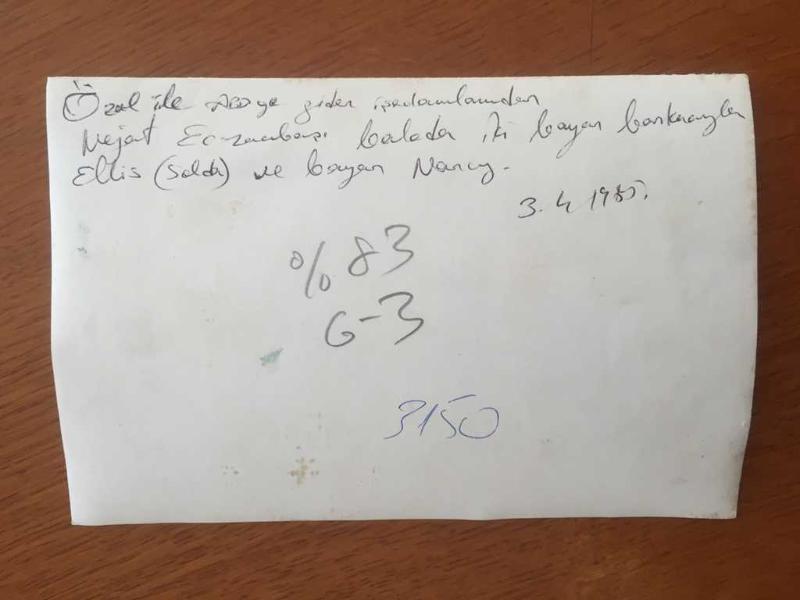 Özal ile ABD ye giden işadamlarından
Nejat Eczacıbaşı baloda iki bayan
Ellis (Solda) ve bayan Nancy.
3.4.1985.
% 83
6-3
3150